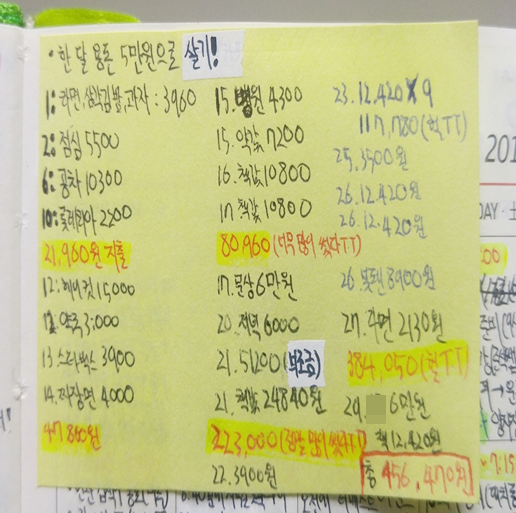 · 한 달 용돈 5만원으로 살기!
1: 라면, 삼각김밥, 과자 : 3960
2: 점심 5500
6: 공차 10300
10: 롯데리아 2200
21,960원 지출
12: 헤어컷 15,000
12. 약국 3,000
13. 스타벅스 3900
14. 짜장면 4,000
47,860원
15. 병원 4300
15. 약값 7200
16. 책값 10800
17. 책값 10800
80,960 (너무 많이 썼다TT)
17. 문상 6만원
20. 저녁 6000
21. 51200 (부조금)
21. 책값 24840원
223,000 (정말 많이 썼다TT)
22. 3900원
23. 12.420 x 9
117,780 (헉TT)
25. 3500원
26. 12.420원
26. 12.420원
26. 8900원
27. 라면 2130원
384,050 (헐TT)
29. 6만원
책 12,420원
총 456,470원
201
DAY · 土
7.15